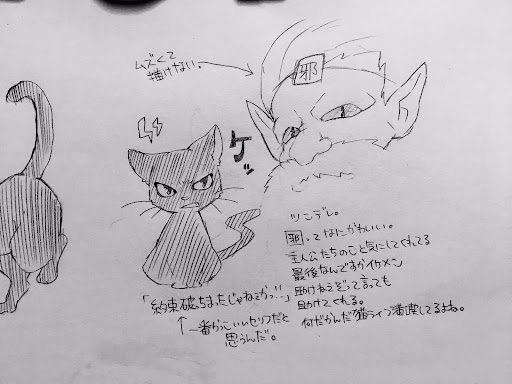 ムズくて
描けない。
邪
ケッ
ツンデレ。
邪ってなにかわいい。
主人公たちのこと気にしてくれてる
最後なんですかイケメン
助けねえぞって言っても
助けてくれる。
何だかんだ猫ライフ満喫してるよね。
「約束破っちまったじゃねェかっ…」
↑一番かっこいいセリフだと
思うんだ。